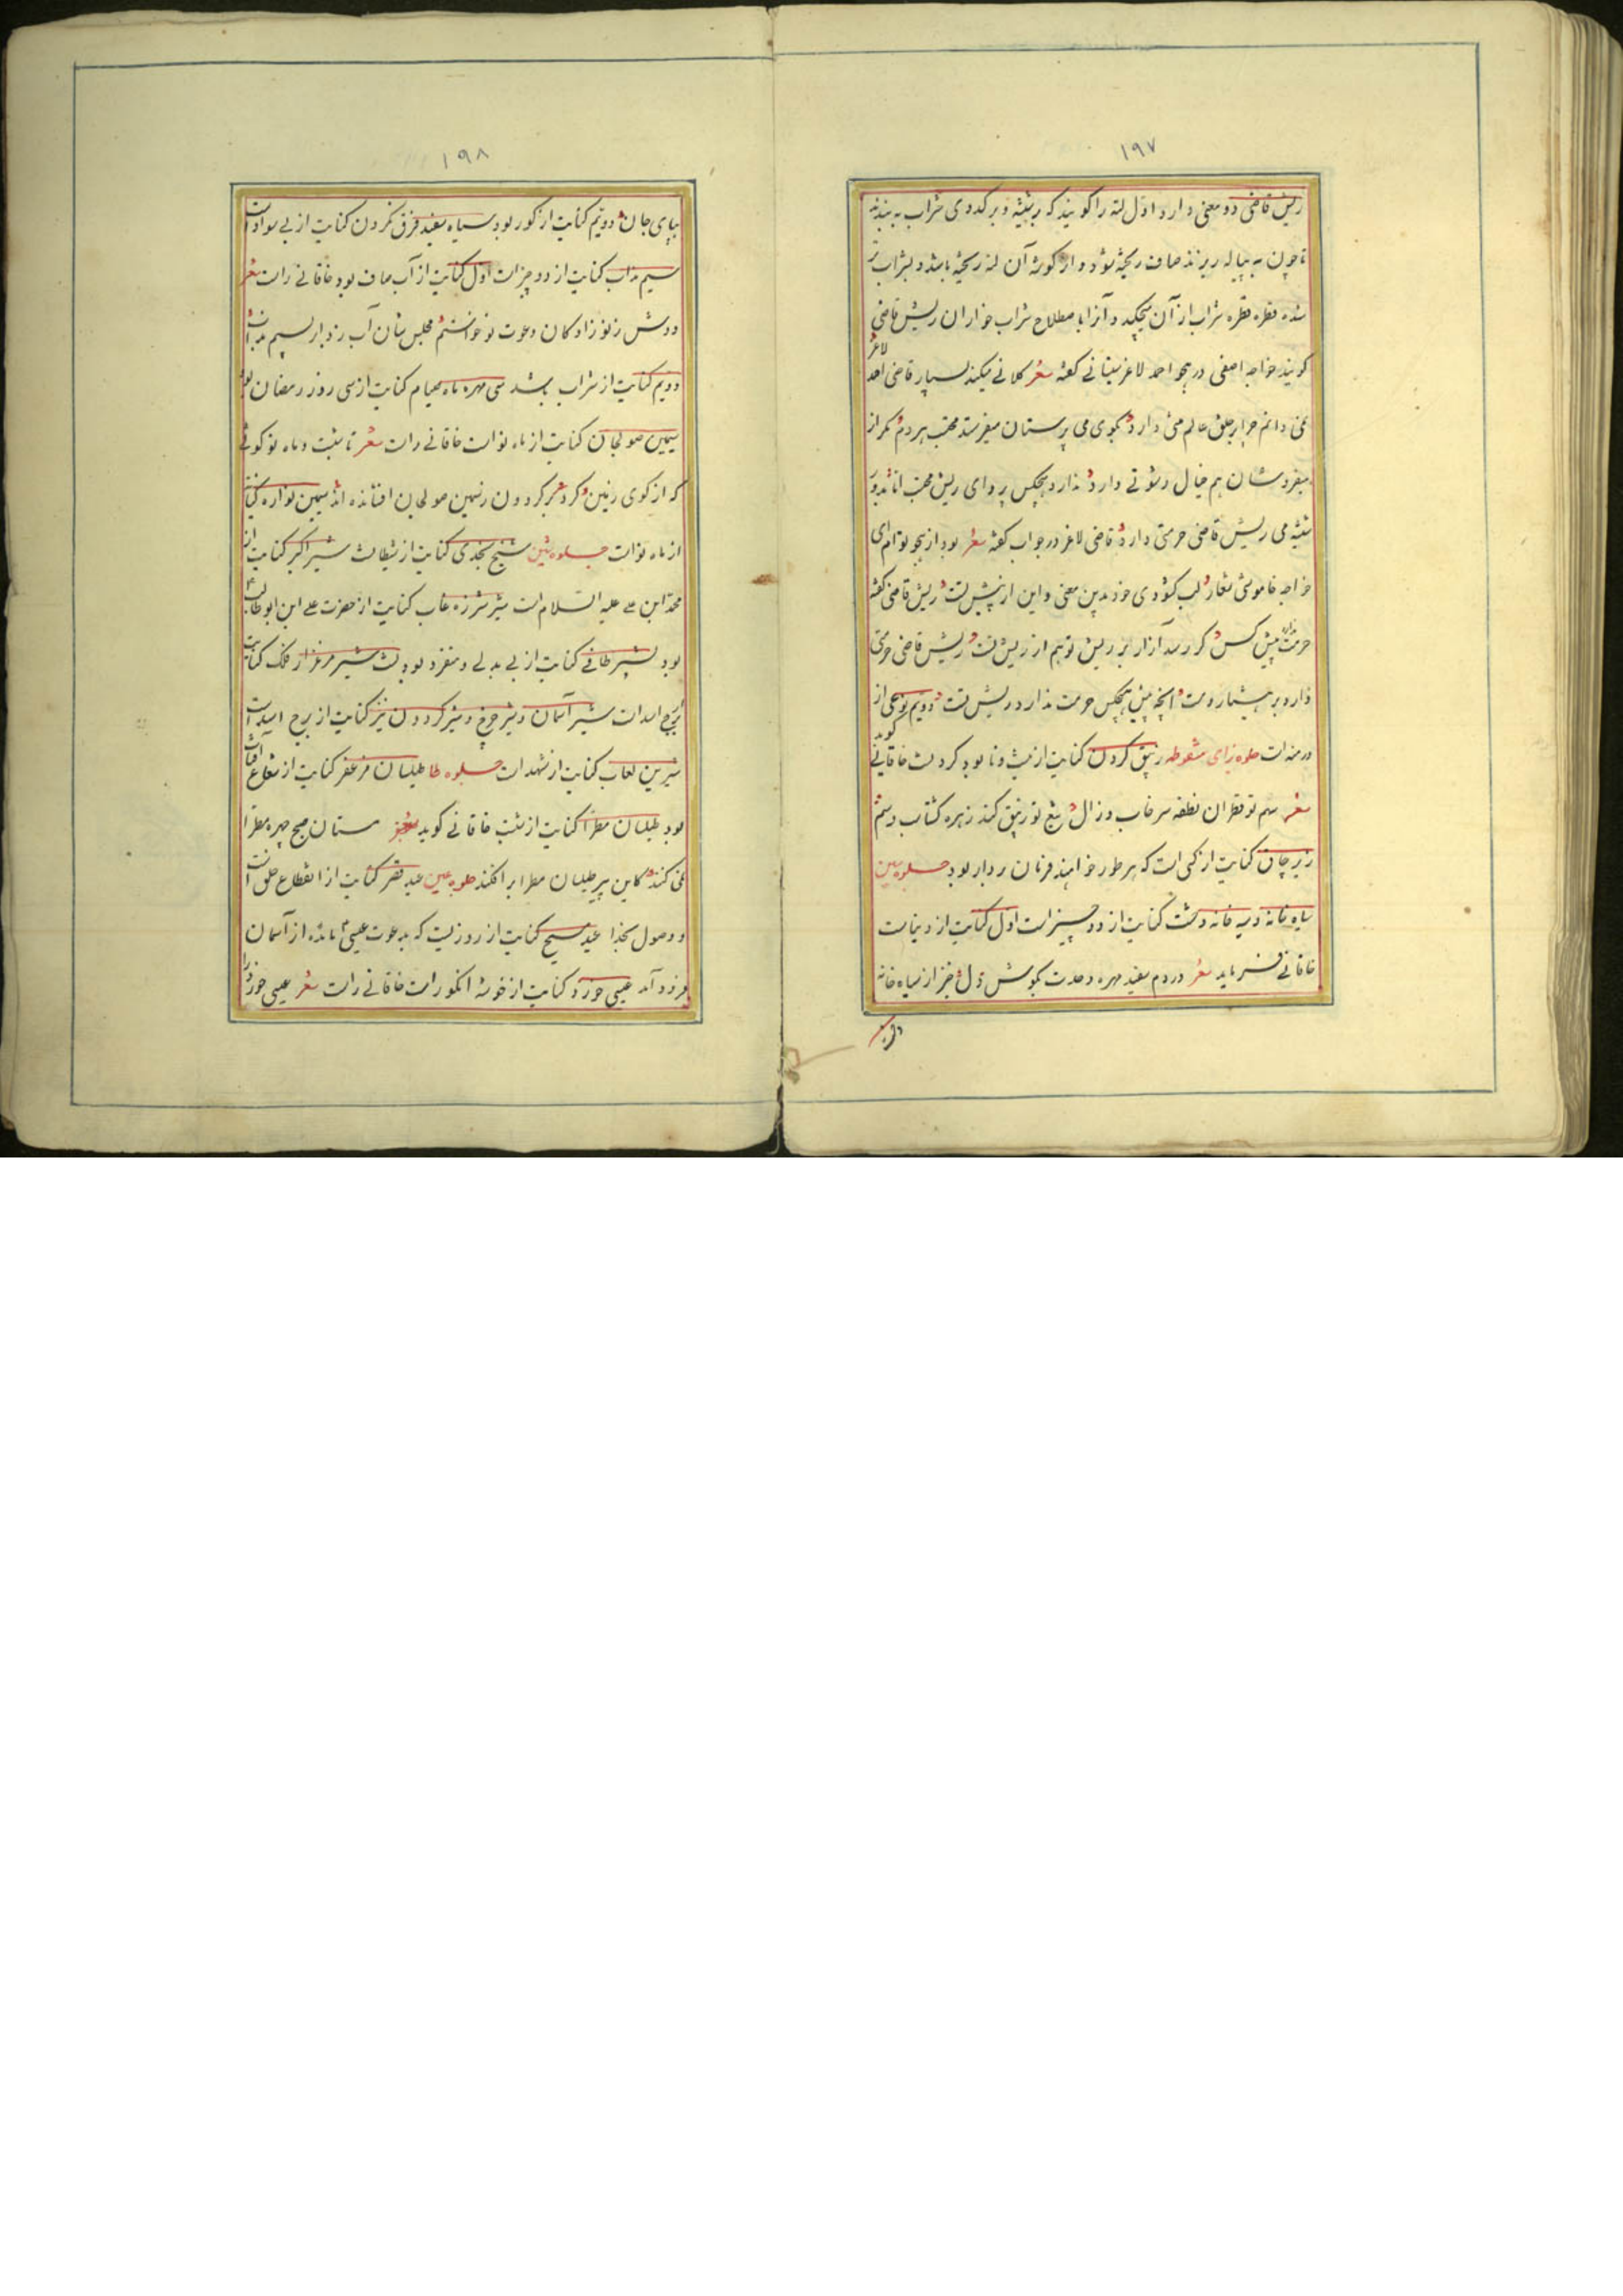 ۱۹۷
ریش قاضی دو معنی دارد اول لته را گویند که بر شیشه و بر کدوی شراب به بندند
تا چون به پیاله ریزند صاف ریخته شود و از گوشه آن لته ریخته باشد و بشراب تر
شده قطره قطره شراب از آن میچکید و آنرا باصطلاح شراب خواران ریش قاضی
گویند خواجه اصفی در هجو احمد لاغر سیستانی گفته شعر کلانی میکند بسیار قاضی احمد لاغر
نمی دانم چرا بر خلق عالم منتی دارد بکوی می پرستان میفرستد محتسب هر دم مگر از
میفروشان هم خیال رشوتی دارد ندارد هیچکس پروای ریش محتسب اما به دور
شیشه می ریش قاضی حرمتی دارد قاضی لاغر در جواب گفته شعر بود از هجو تو ام ای
خواجه خاموشی شعار لب گشودی خود بدین معنی و این از پیش تست ریش قاضی گفته
حرمت ندارد پیش کس گر رسد آزار بر ریش تو هم از ریش تست ریش قاضی حرمتی
دارد بر هشیار و مست آنچه پیش هیچکس حرمت ندارد ریش تست دویم نوعی از
درمنه است جلوه زای منقوطه زیبق کردن کنایت از نیست و نابود کردنست خاقانی گوید
شعر سهم تو قطران نطفه سرخاب و زال تیغ تو زیبق کند زهره گشتاسب و سم
زیر چاق کنایت از کسی است که هر طور خواهند فرمان بردار بود جلوه سین
سیاه خانه و سیه خانه وحشت کنایت از دو چیز است اول کنایت از دنیاست
خاقانی فرماید شعر در دم سفید مهره وحدت بگوش دل خیز از سیاه خانه
۱۹۸
بپای جان دویم کنایت از گور بود سیاه سفید فرق نکردن کنایت از بی سوادیست
سیم مذاب کنایت از دو چیز است اول کنایت از آب صاف بود خاقانی راست شعر
دوش ز نوزادگان دعوت نو خواستم مجلس شان آب زد ابر بسیم مذاب
دویم کنایت از شراب باشد سی مهره ماه صیام کنایت از سی روز رمضان بود
سیمین صولجان کنایت از ماه نو است خاقانی راست شعر تا شبست و ماه نو گوئی
که از گوی زرین گرد گردون زسیمین صولجان افشانده اند سیمین نواره کنایت
از ماه نو است جلوه شین شیخ نجدی کنایت از شیطانست شیر اکبر کنایت از
محمد ابن علی علیه السلام است شیر شرزه غاب کنایت از حضرت علی ابن ابوطالب
بود شیر طاقی کنایت از بی بدلی و منفرد بودنست شیر مرغزار فلک کنایت
برج اسد است شیر آسمان و شیر چرخ و شیر گردون نیز کنایت از برج اسد است
شیرین لعاب کنایت از شهد است جلوه طا طیلسان مزعفر کنایت از شعاع آفتاب
بود طیلسان مطرا کنایت از شب خاقانی گوید شعر مستان صبح چهره مطرا
می کنند کاین پیر طیلسان مطرا برافکند جلوه عین عید فقر کنایت از انقطاع خلق است
و وصول بخدا عید مسیح کنایت از روزیست که بدعوت عیسی مائده از آسمان
فرود آمد عیسی خورد کنایت از خوشه انگور است خاقانی راست شعر عیسی خورد را